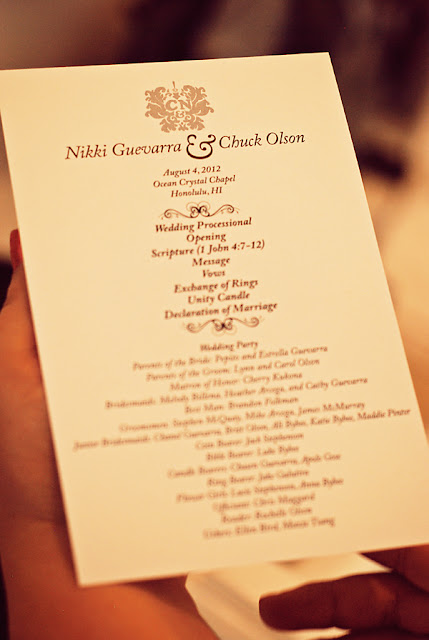 CN
Nikki Guevarra & Chuck Olson
August 4, 2012
Ocean Crystal Chapel
Honolulu, HI
Wedding Processional
Opening
Scripture (1 John 4:7-12)
Message
Vows
Exchange of Rings
Unity Candle
Declaration of Marriage
Wedding Party
Parents of the Bride: Pepito and Estrella Guevarra
Parents of the Groom: Lynn and Carol Olson
Matron of Honor: Cherry Kukona
Bridesmaids: Melody Billena, Heather Arzaga, and Cathy Guevarra
Best Man: Brandon Folkman
Groomsmen: Stephen McQuay, Mike Arzaga, James McMurray
Junior Bridesmaids: Chanel Guevarra, Brie Olson, Ali Bybee, Katie Bybee, Maddie Pinter
Coin Bearer: Jack Stephenson
Bible Bearer: Luke Bybee
Candle Bearers: Chaurn Guevarra, Goo
Ring Bearer: Jake
Flower Girl: Stephenson, Anna Bybee
Officiant: Chris Muggard
Reader: Rachelle Olson
Ushers: Ellen Bird, Tsang